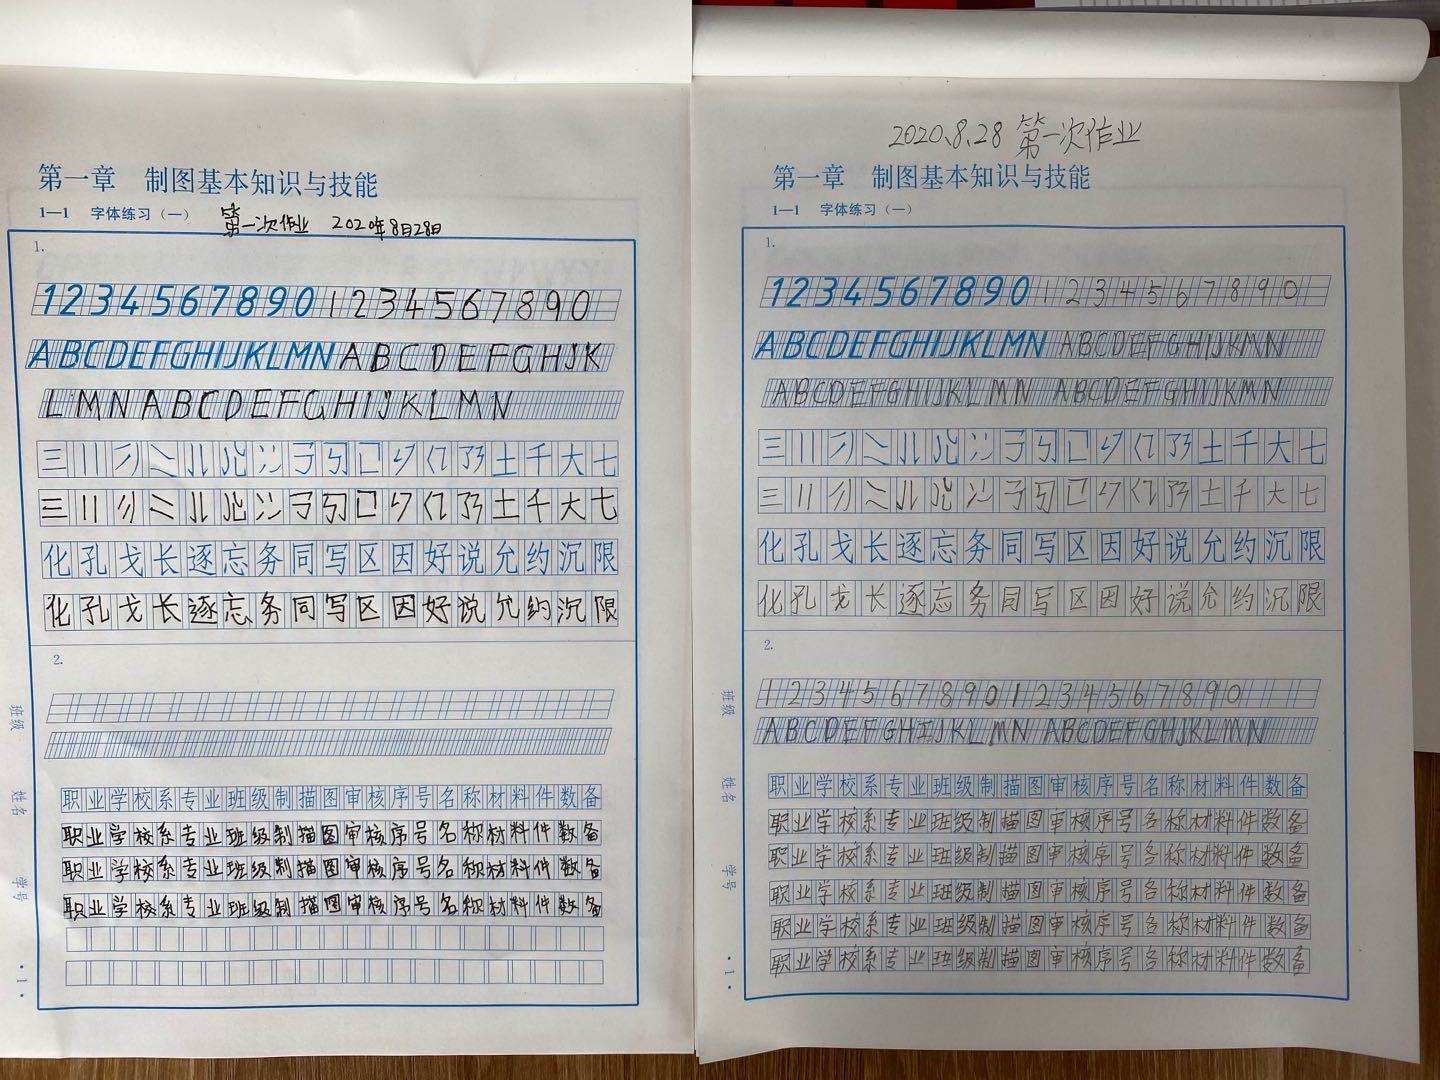 第一章 制图基本知识与技能
1—1 字体练习（一） 第一次作业 2020年8月28日
1.
1234567890 1234567890
ABCDEFGHIJKLMN ABCDEFGHJK
LMNABCDEFGHIJKLMN
三 川 彡 土 千 大 七
三 川 彡 土 千 大 七
化孔戈长逐忘务同写区因好说允约沉限
化孔戈长逐忘务同写区因好说允约沉限
2.
职业学校系专业班级制描图审核序号名称材料件数备
职业学校系专业班级制描图审核序号名称材料件数备
职业学校系专业班级制描图审核序号名称材料件数备
职业学校系专业班级制描图审核序号名称材料件数备
班级
姓名
学号
·1·
2020.8.28 第一次作业
第一章 制图基本知识与技能
1—1 字体练习（一）
1.
1234567890 1234567890
ABCDEFGHIJKLMN ABCDEFGHIJKMN
ABCDEFGHIJKLMN ABCDEFGHIJKMN
三 川 彡 土 千 大 七
三 川 彡 土 千 大 七
化孔戈长逐忘务同写区因好说允约沉限
化孔戈长逐忘务同写区因好说允约沉限
2.
1234567890 1234567890
ABCDEFGHIJKLMN ABCDEFGHIJKLMN
职业学校系专业班级制描图审核序号名称材料件数备
职业学校系专业班级制描图审核序号名称材料件数备
职业学校系专业班级制描图审核序号名称材料件数备
职业学校系专业班级制描图审核序号名称材料件数备
职业学校系专业班级制描图审核序号名称材料件数备
职业学校系专业班级制描图审核序号名称材料件数备
班级
姓名
学号
·1·